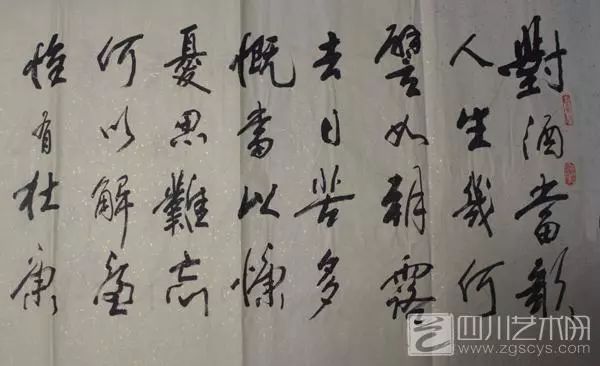 對酒當歌
人生幾何
譬如朝露
去日苦多
慨當以慷
憂思難忘
何以解憂
惟有杜康
四川艺术网
www.zgscys.com